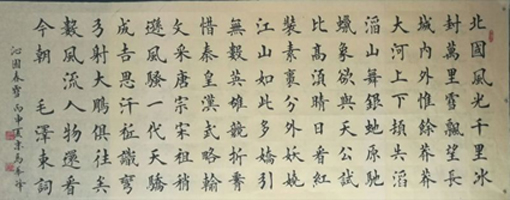 北國風光千里冰
封萬里雪飄望長
城內外惟餘莽莽
大河上下頓失滔
滔山舞銀虵原馳
蠟象欲與天公試
比高須晴日看紅
裝素裹分外妖嬈
江山如此多嬌引
無數英雄競折腰
惜秦皇漢武略輸
文采唐宗宋祖稍
遜風騷一代天驕
成吉思汗祇識彎
弓射大鵰俱往矣
數風流人物還看
今朝 毛澤東詞
沁園春雪 丙申